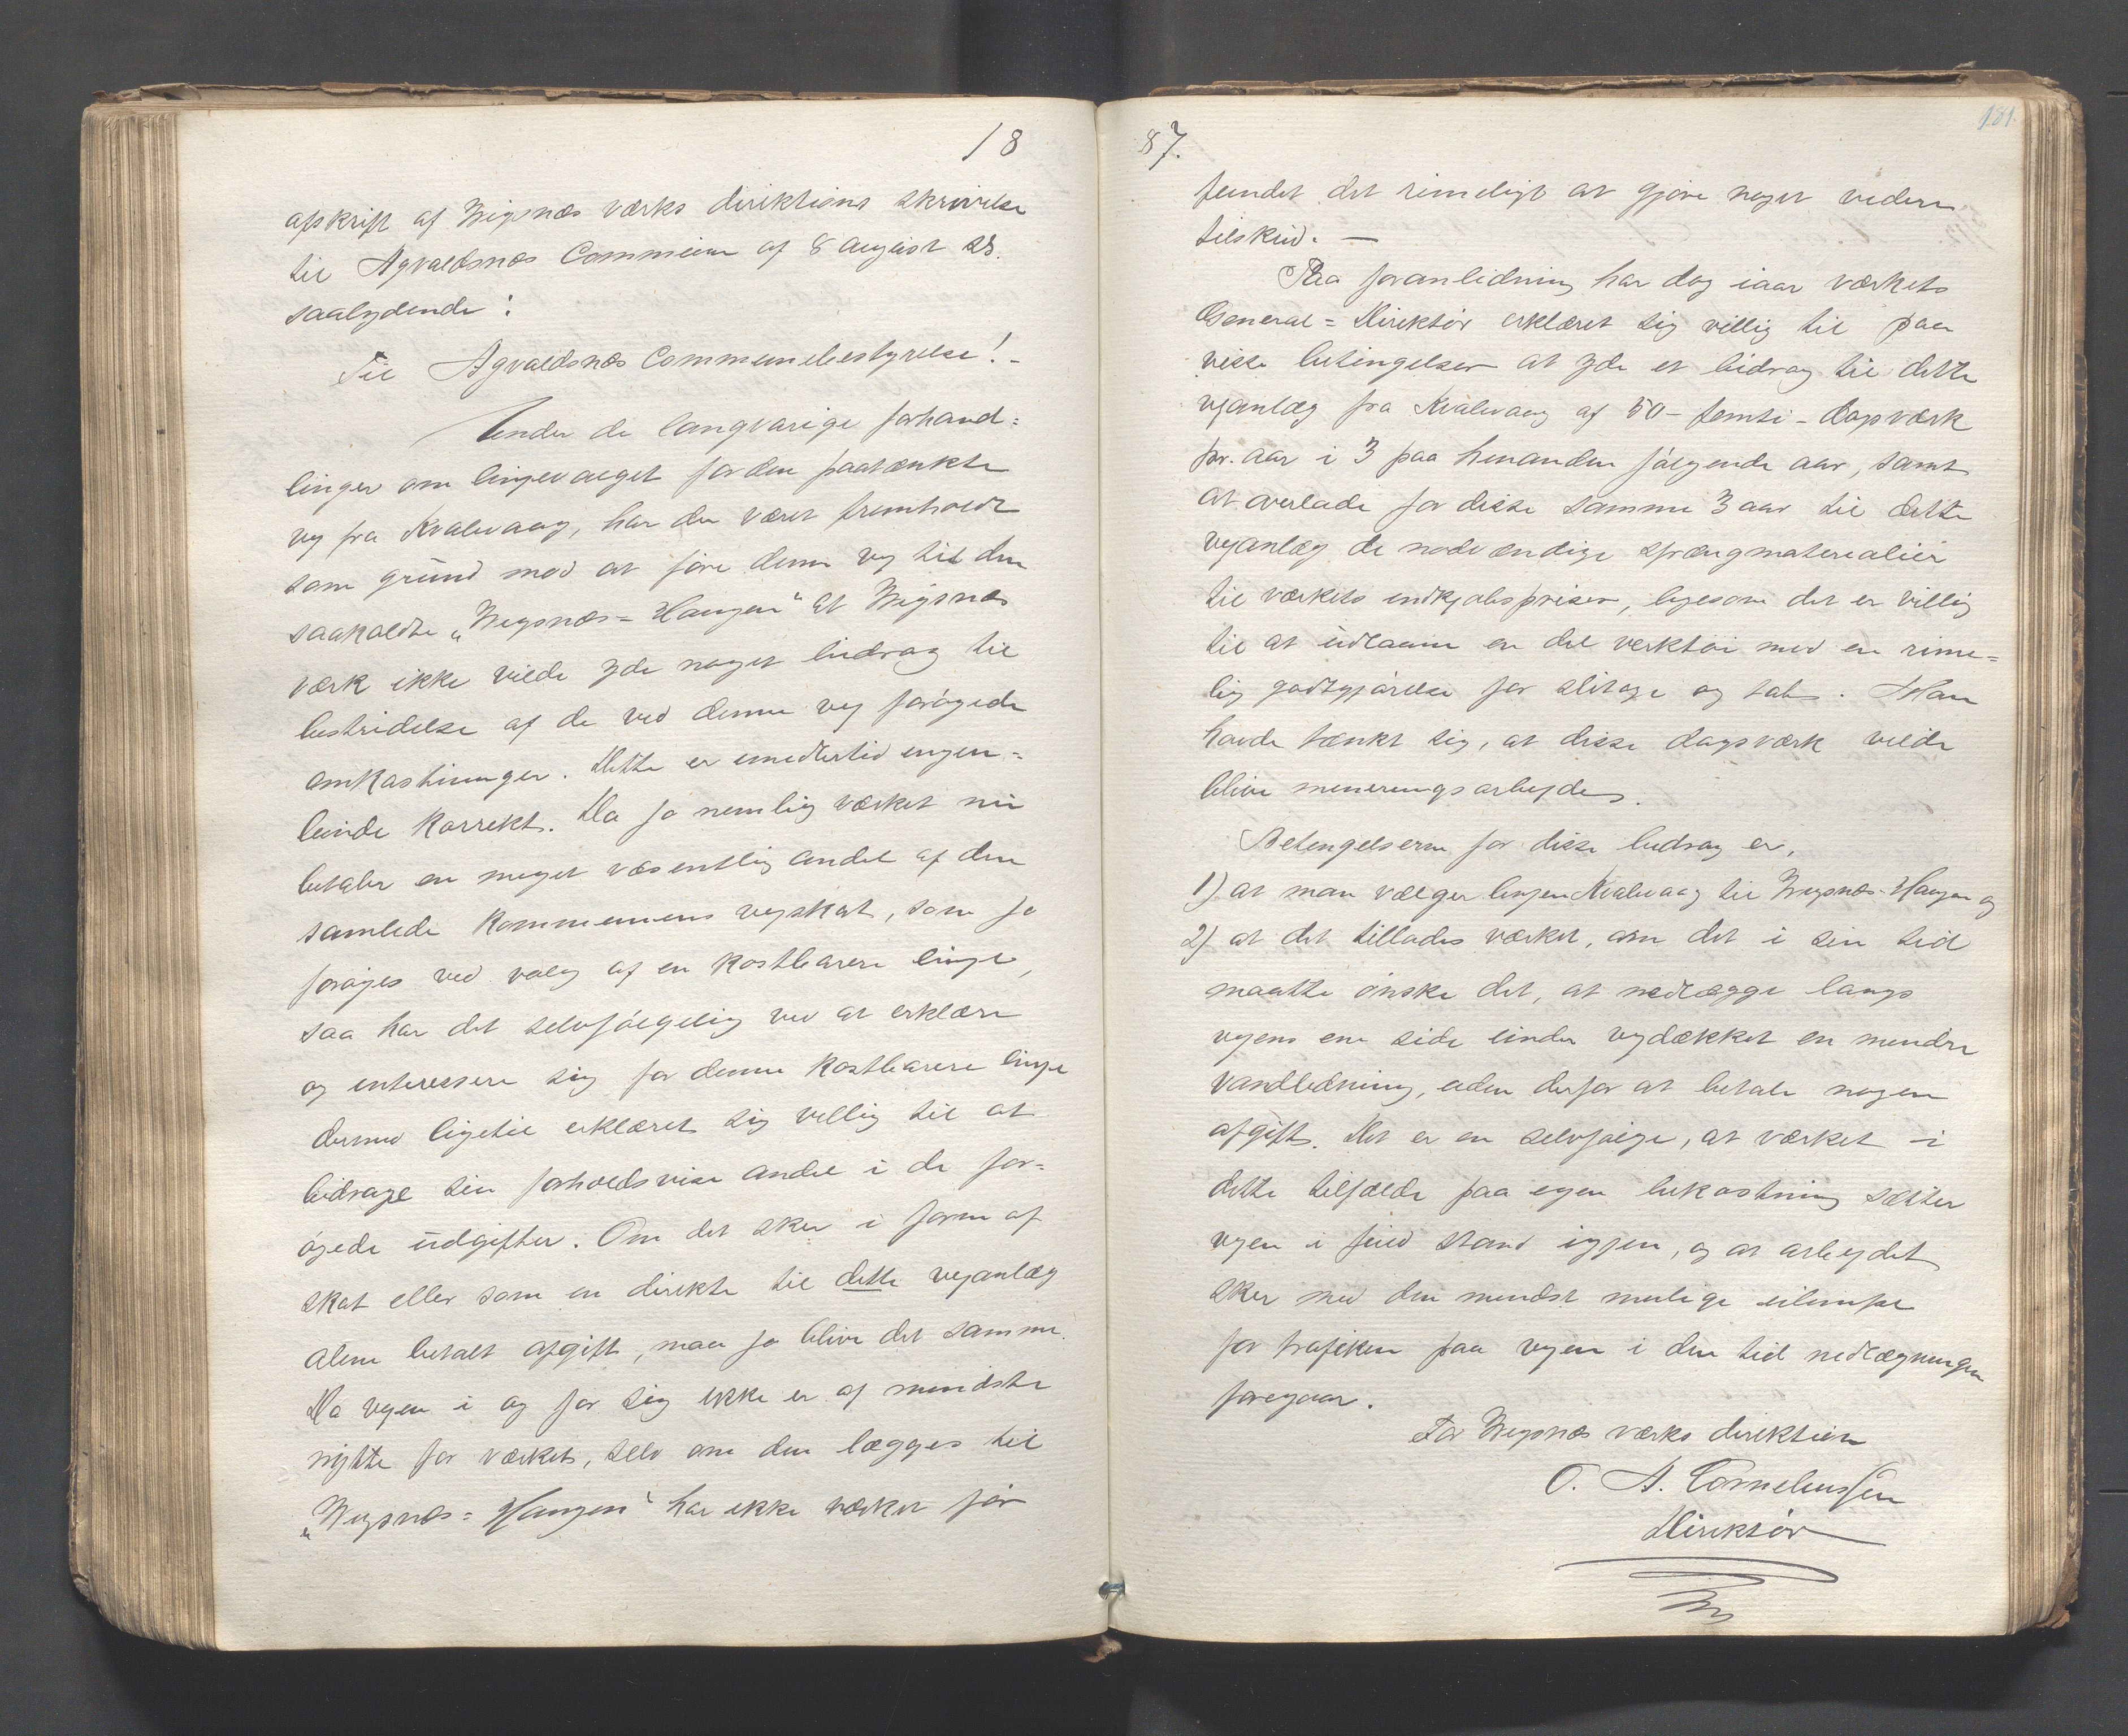 18
afskrift af Vigsnæs værks direktions skrivelse
til Agvaldsnæs Commune af 8 August ds.
saalydende:
Til Agvaldsnæs Communebestyrelse! -
Under de langvarige forhand=
linger om linjevalget for den paatænkte
vej fra Kvalevaag, har der været fremholdt
som grund mod at føre denne vej til den
saakaldte "Vigsnæs=Haugen" at Vigsnæs
værk ikke vilde yde noget bidrag til
bestridelse af de ved denne vej forøgede
omkostninger. Dette er imidlertid ingen=
lunde korrekt. Da jo nemlig værket nu
betaler en meget væsentlig andel af den
samlede kommunens vejskat, som jo
forøges ved valg af en kostbarere linje,
saa har det selvfølgelig ved at erklære
og interessere sig for denne kostbarere linje
dermed ligetil erklæret sig villig til at
bidrage sin forholdsvise andel i de for=
øgede udgifter. Om det sker i form af
skat eller som en direkte til dette vejanlæg
alene betalt afgift, maa jo blive det samme.
Da vejen i og for sig ikke er af mindste
nytte for værket, selv om den lægges til
"Vigsnæs=Haugen" har ikke værket før
87.
181.
fundet det rimeligt at gjøre noget videre
tilskud. —
Paa foranledning har dog iaar værkets
General=Direktør erklæret sig villig til paa
visse betingelser at yde et bidrag til dette
vejanlæg fra Kvalevaag af 50 - femti - dagsværk
pr. aar i 3 paa hinanden følgende aar, samt
at overlade for disse samme 3 aar til dette
vejanlæg de nødvændige sprængmaterialier
til værkets indkjøbspriser, ligesom det er villig
til at udlaane en del verktøi mod en rime=
lig godtgjørelse for slitage og tab. Man
havde tænkt sig, at disse dagsværk vilde
blive mineringsarbejde.
Betingelserne for disse bidrag er,
1) at man vælger linjen Kvalevaag til Vigsnæs-Haugen og
2) at det tillades værket, om det i sin tid
maatte ønske det, at nedlægge langs
vejens ene side under vejdækket en mindre
vandledning, uden derfor at betale nogen
afgift. Det er en selvfølge, at værket i
dette tilfælde paa egen bekostning sætter
vejen i fuld stand igjen, og at arbejdet
sker med den mindst mulige ulempe
for trafiken paa vejen i den tid nedlægningen
foregaar.
For Vigsnæs værks direktion
O. A. Corneliussen
Direktør